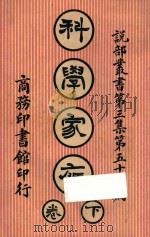 說部叢書第三集第五十
科學家
下卷
商務印書館印行